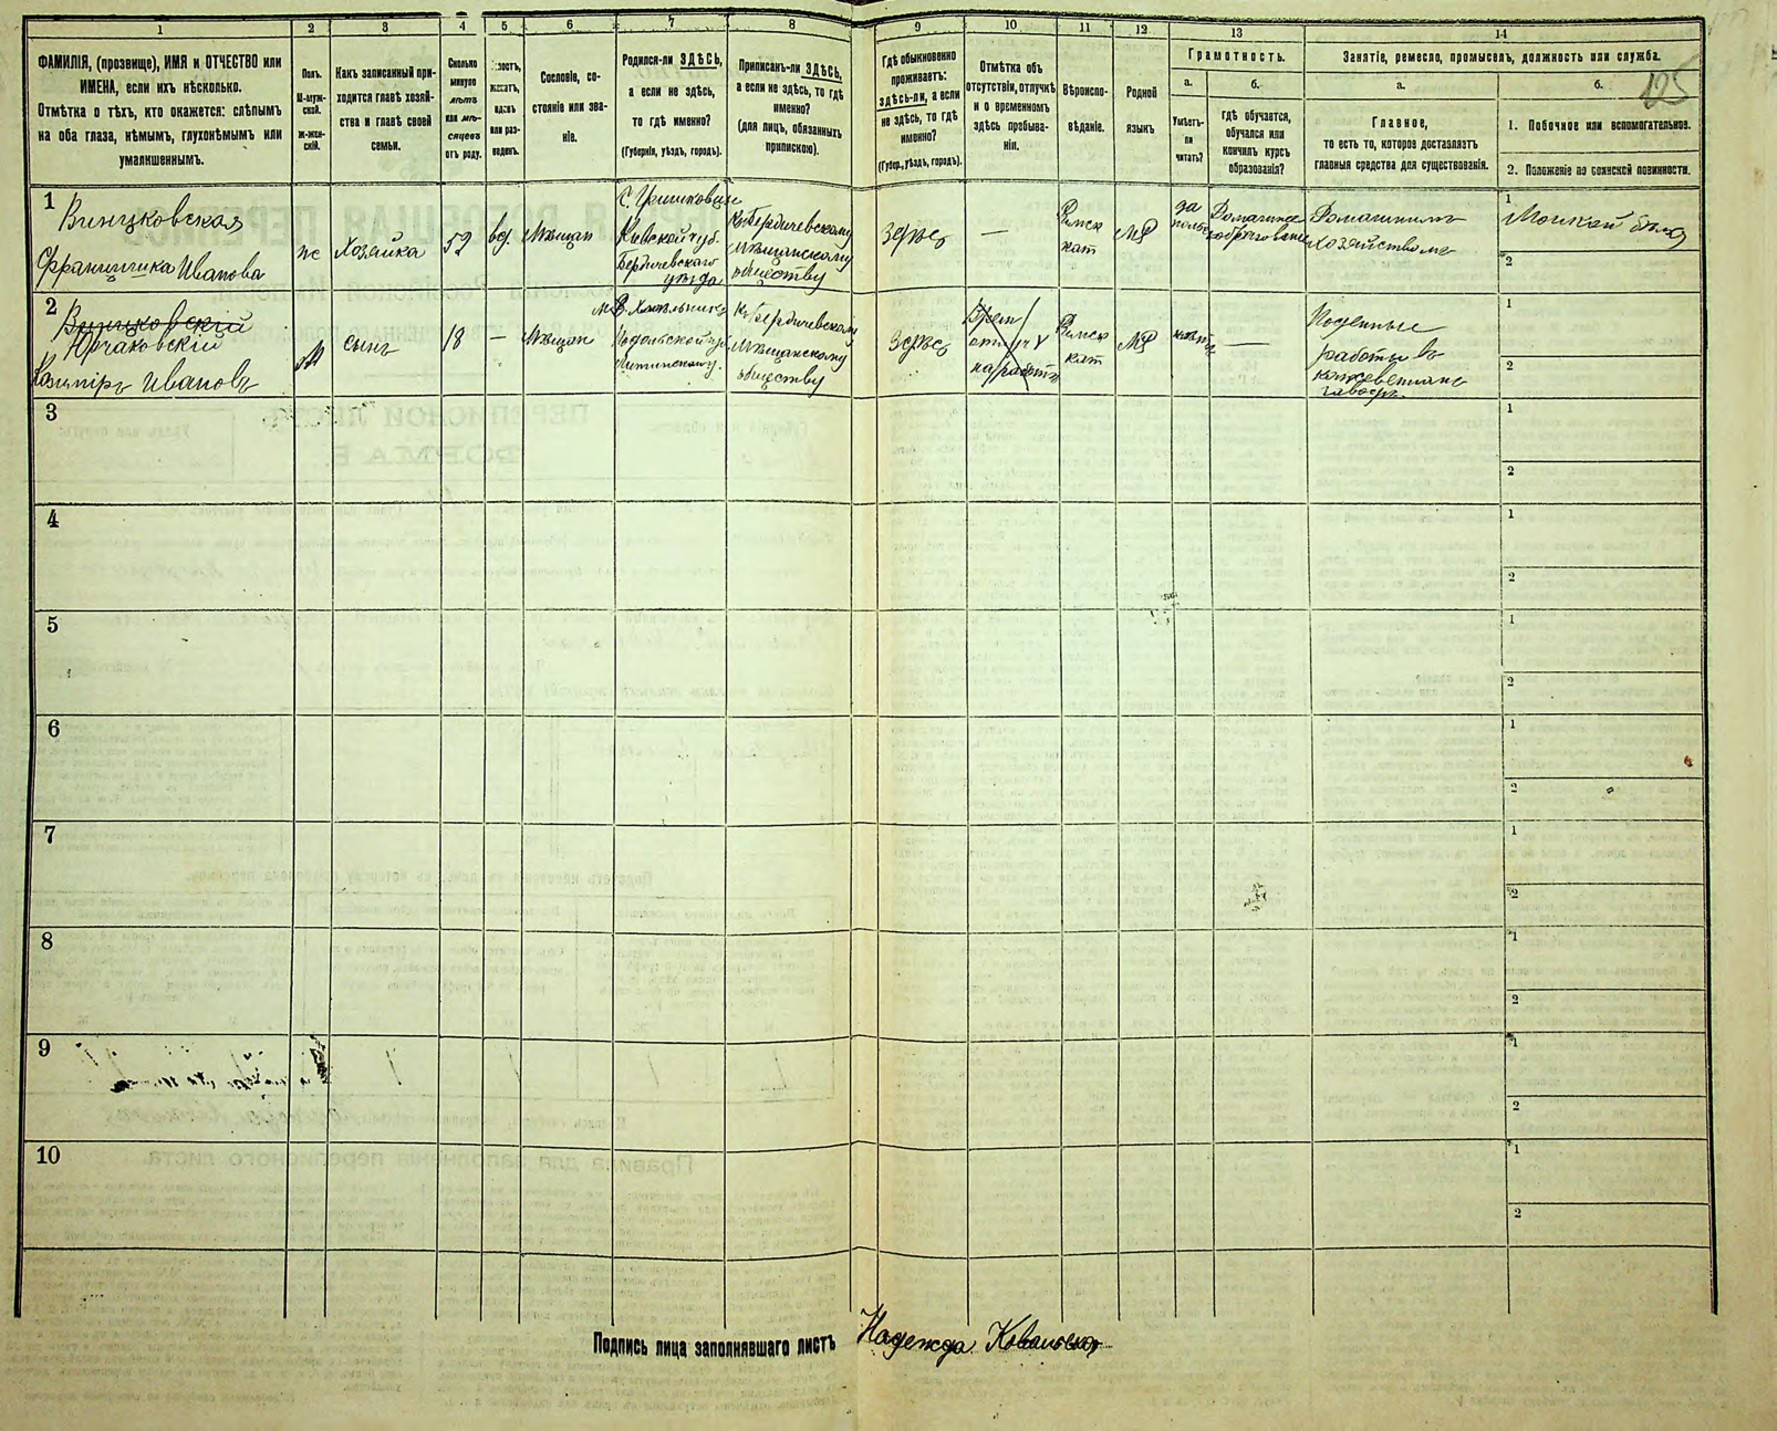 1 2 3 4 5 6 7 8 9 10 11 12 13 14
125
ФАМИЛІЯ, (прозвище), ИМЯ и ОТЧЕСТВО или
ИМЕНА, если ихъ нѣсколько.
Отмѣтка о тѣхъ, кто окажется: слѣпымъ
на оба глаза, нѣмымъ, глухонѣмымъ или
умалишеннымъ.
Полъ.
М-муж-
ской.
ж-жен-
скій.
Какъ записанный при-
ходится главѣ хозяй-
ства и главѣ своей
семьи.
Сколько
минуло
лѣтъ
или мѣ-
сяцевъ
отъ роду.
женатъ,
вдовъ
или раз-
веденъ.
Сословіе, со-
стояніе или зва-
ніе.
Родился-ли ЗДѢСЬ,
а если не здѣсь,
то гдѣ именно?
(Губернія, уѣздъ, городъ).
Приписанъ-ли ЗДѢСЬ,
а если не здѣсь, то гдѣ
именно?
(для лицъ, обязанныхъ
припискою).
Гдѣ обыкновенно
проживаетъ:
здѣсь-ли, а если
не здѣсь, то гдѣ
именно?
(Губер., уѣздъ, городъ).
Отмѣтка объ
отсутствіи, отлучкѣ
и о временномъ
здѣсь пребыва-
ніи.
Вѣроиспо-
вѣданіе.
Родной
языкъ
Грамотность.
а.
Умѣетъ-
ли
читать?
б.
гдѣ обучается,
обучался или
кончилъ курсъ
образованія?
Занятіе, ремесло, промыселъ, должность или служба.
а.
Главное,
то есть то, которое доставляетъ
главныя средства для существованія.
б.
1. Побочное или вспомогательное.
2. Положеніе по воинской повинности.
1
Винцковская
Францишка Иванова
ж
Хозяйка
52
вд.
Мѣщан
Кіевской губ.
Бердичевскаго
уѣзда
Къ Бердичевскому
Мѣщанскому
обществу
здѣсь
—
Римск
кат
Домашнее
образованіе
Домашнимъ
хозяйствомъ
1
2
2
Винцковскій
Юрчаковскій
Казиміръ Ивановъ
М
сынъ
18
—
Мѣщан
Подольской губ.
къ Бердичевскому
Мѣщанскому
обществу
здѣсь
Римск
кат
—
Поденные
работы въ
кожевенномъ
заводѣ.
1
2
3
1
2
4
1
2
5
1
2
6
1
2
7
1
2
8
1
2
9
1
2
10
1
2
Подпись лица заполнявшаго листъ Надежда